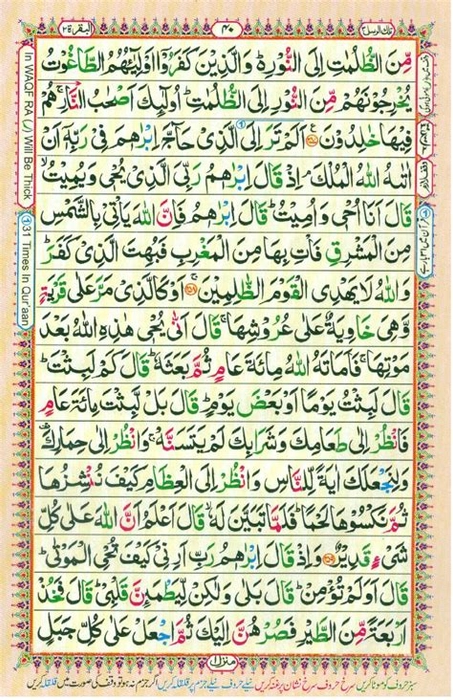 تلك الرسل ٣
٤٠
البقرة ٢
مِّنَ الظُّلُمٰتِ اِلَى النُّوْرِ۬ؕ وَالَّذِيْنَ كَفَرُوْۤا اَوْلِيٰٓـُٔهُمُ الطَّاغُوْتُ
يُخْرِجُوْنَهُمْ مِّنَ النُّوْرِ اِلَى الظُّلُمٰتِؕ اُولٰٓئِكَ اَصْحٰبُ النَّارِۚ هُمْ
فِيْهَا خٰلِدُوْنَ۠ ﴿۲۵۷﴾ اَلَمْ تَرَ اِلَى الَّذِيْ حَآجَّ اِبْرٰهٖمَ فِيْ رَبِّهٖۤ اَنْ
اٰتٰىهُ اللّٰهُ الْمُلْكَۘ اِذْ قَالَ اِبْرٰهٖمُ رَبِّيَ الَّذِيْ يُحْيٖ وَيُمِيْتُۙ
قَالَ اَنَا اُحْيٖ وَاُمِيْتُؕ قَالَ اِبْرٰهٖمُ فَاِنَّ اللّٰهَ يَاْتِيْ بِالشَّمْسِ
مِنَ الْمَشْرِقِ فَاْتِ بِهَا مِنَ الْمَغْرِبِ فَبُهِتَ الَّذِيْ كَفَرَؕ
وَاللّٰهُ لَا يَهْدِي الْقَوْمَ الظّٰلِمِيْنَۚ ﴿۲۵۸﴾ اَوْ كَالَّذِيْ مَرَّ عَلٰى قَرْيَةٍ
وَّهِيَ خَاوِيَةٌ عَلٰى عُرُوْشِهَاۚ قَالَ اَنّٰى يُحْيٖ هٰذِهِ اللّٰهُ بَعْدَ
مَوْتِهَاۚ فَاَمَاتَهُ اللّٰهُ مِائَةَ عَامٍ ثُمَّ بَعَثَهٗؕ قَالَ كَمْ لَبِثْتَؕ
قَالَ لَبِثْتُ يَوْمًا اَوْ بَعْضَ يَوْمٍؕ قَالَ بَلْ لَّبِثْتَ مِائَةَ عَامٍ
فَانْظُرْ اِلٰى طَعَامِكَ وَشَرَابِكَ لَمْ يَتَسَنَّهْۚ وَانْظُرْ اِلٰى حِمَارِكَ
وَلِنَجْعَلَكَ اٰيَةً لِّلنَّاسِ وَانْظُرْ اِلَى الْعِظَامِ كَيْفَ نُنْشِزُهَا
ثُمَّ نَكْسُوْهَا لَحْمًاؕ فَلَمَّا تَبَيَّنَ لَهٗۙ قَالَ اَعْلَمُ اَنَّ اللّٰهَ عَلٰى كُلِّ
شَيْءٍ قَدِيْرٌ ﴿۲۵۹﴾ وَاِذْ قَالَ اِبْرٰهٖمُ رَبِّ اَرِنِيْ كَيْفَ تُحْيِ الْمَوْتٰىؕ
قَالَ اَوَلَمْ تُؤْمِنْؕ قَالَ بَلٰى وَلٰكِنْ لِّيَطْمَئِنَّ قَلْبِيْؕ قَالَ فَخُذْ
اَرْبَعَةً مِّنَ الطَّيْرِ فَصُرْهُنَّ اِلَيْكَ ثُمَّ اجْعَلْ عَلٰى كُلِّ جَبَلٍ
منزل ١
In WAQF RA (ر) Will Be Thick
① 31 Times In Qur'aan